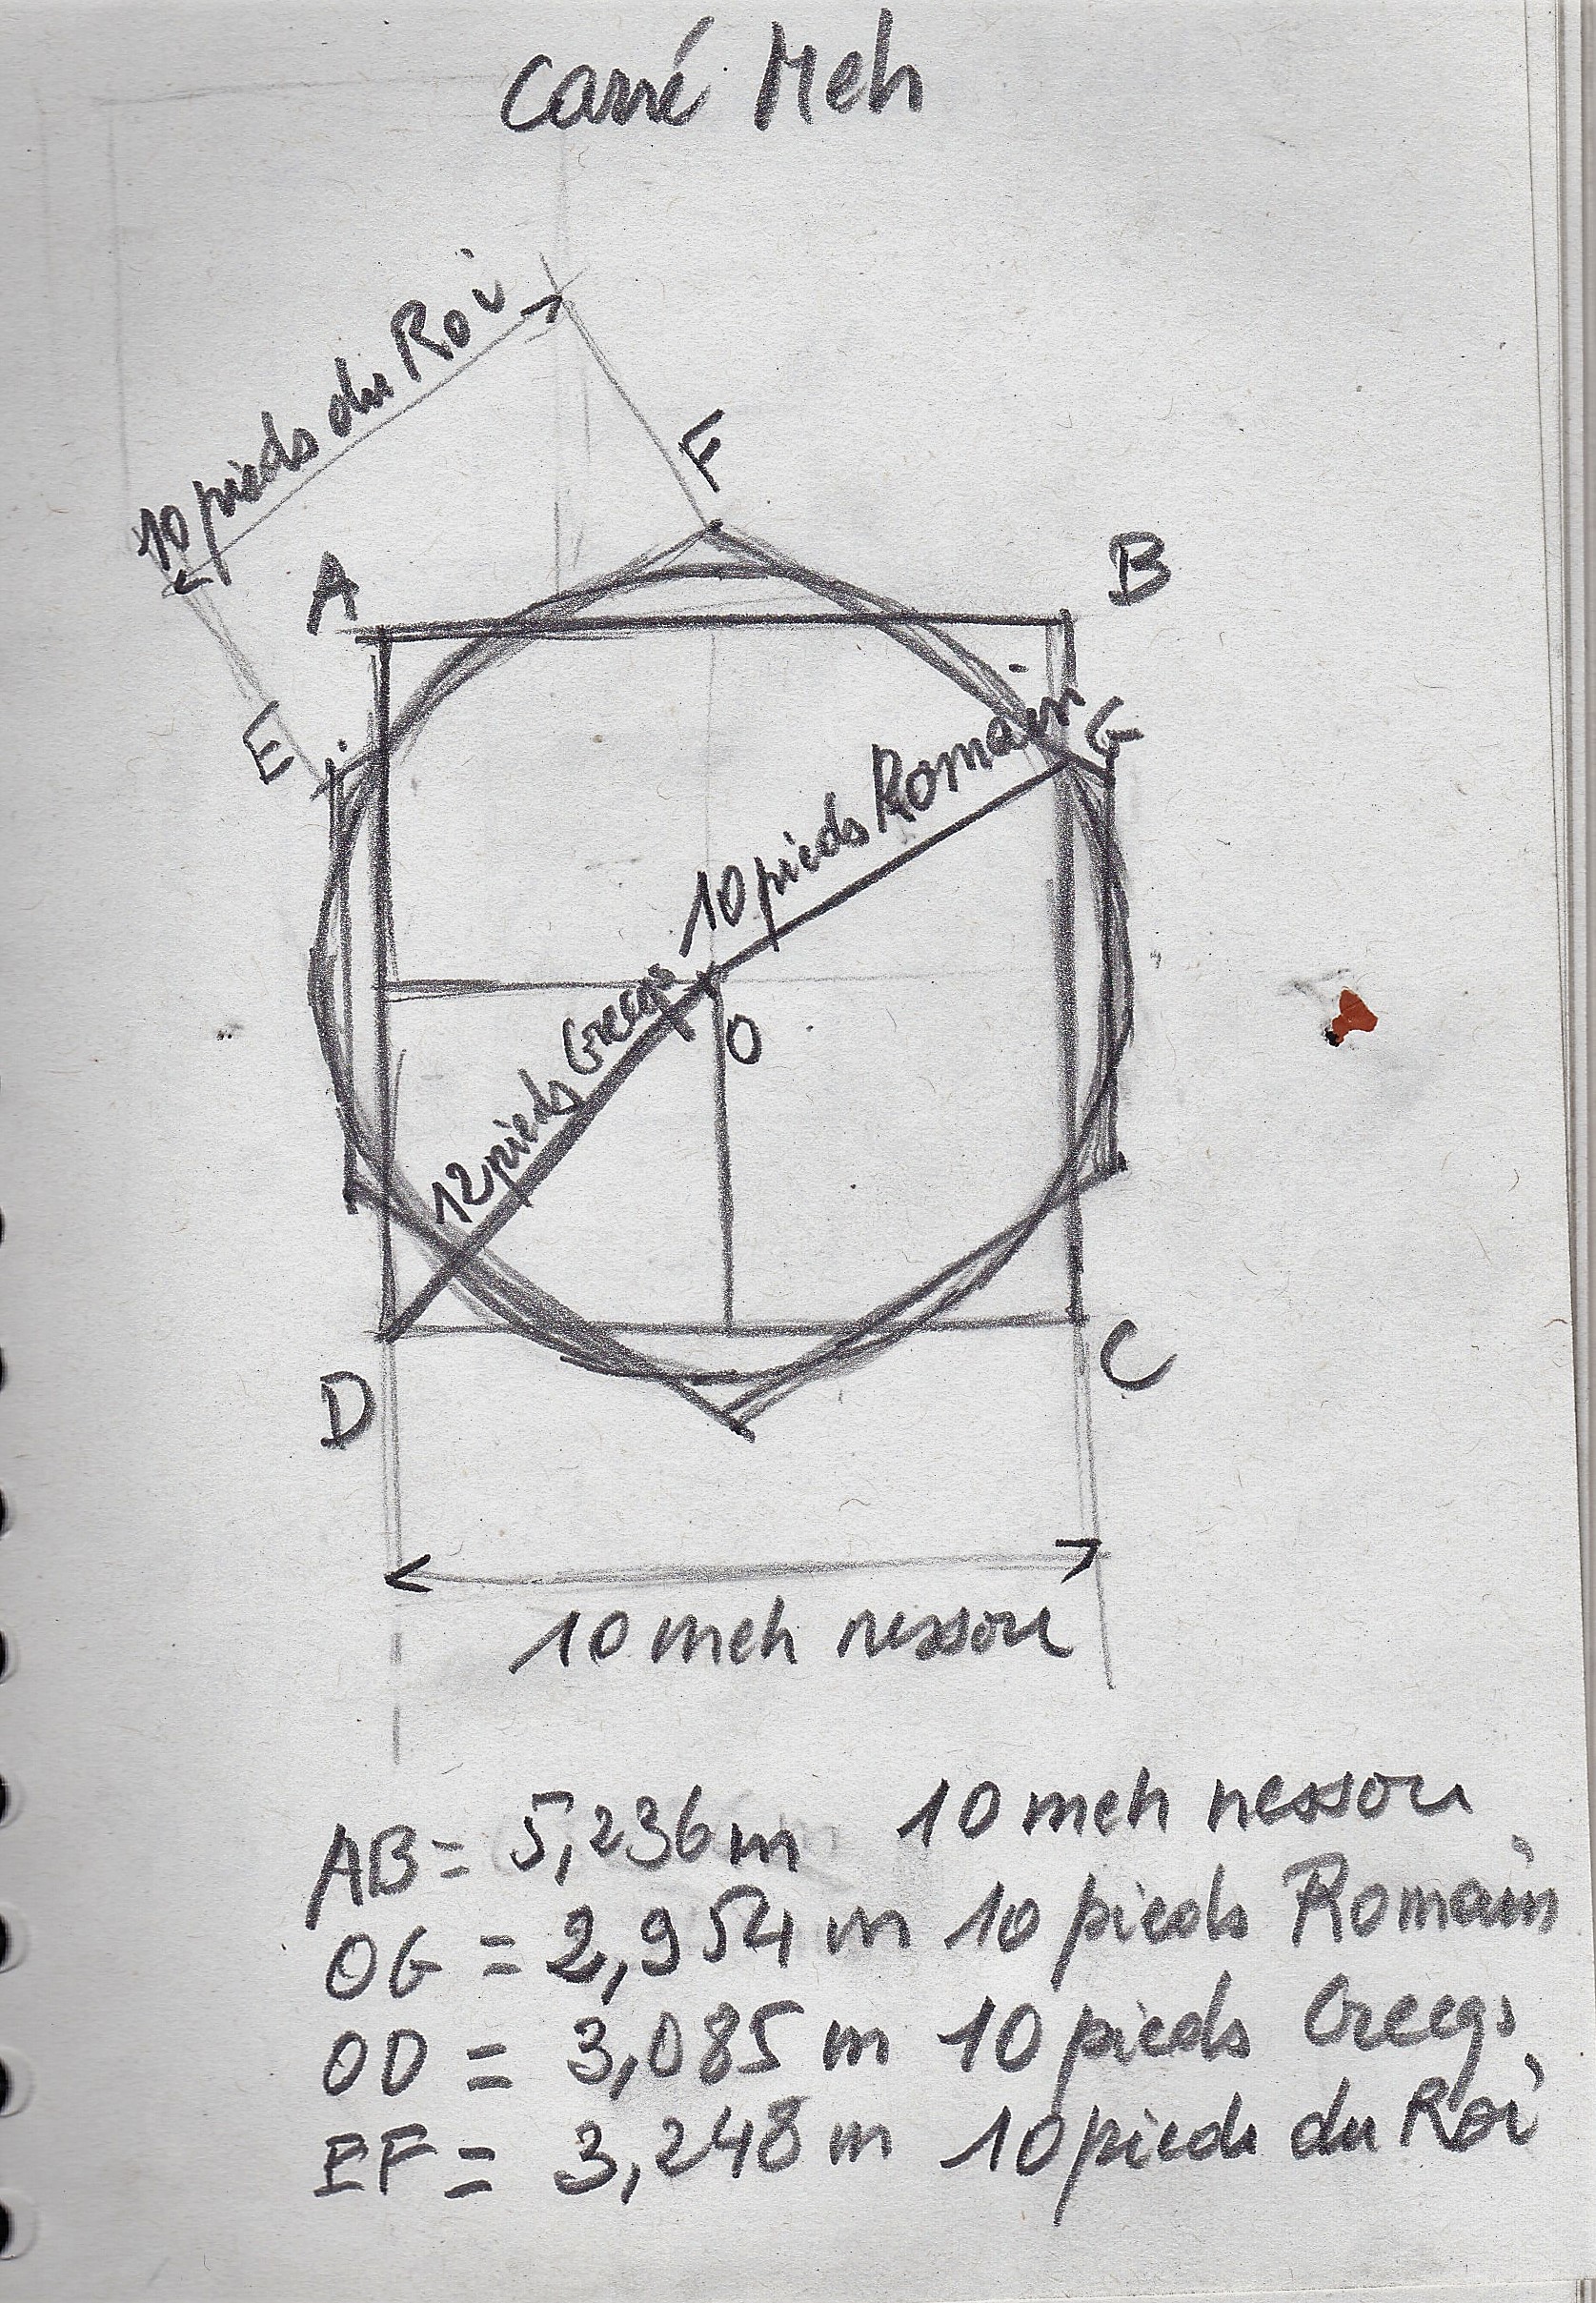 Carré Meh
10 pieds du Roi
F
A
B
E
G
10 pieds Romain
12 pieds Grecqs
O
D
C
10 meh nessou
AB = 5,236 m 10 meh nessou
OG = 2,954 m 10 pieds Romain
OD = 3,085 m 10 pieds Grecqs
EF = 3,248 m 10 pieds du Roi